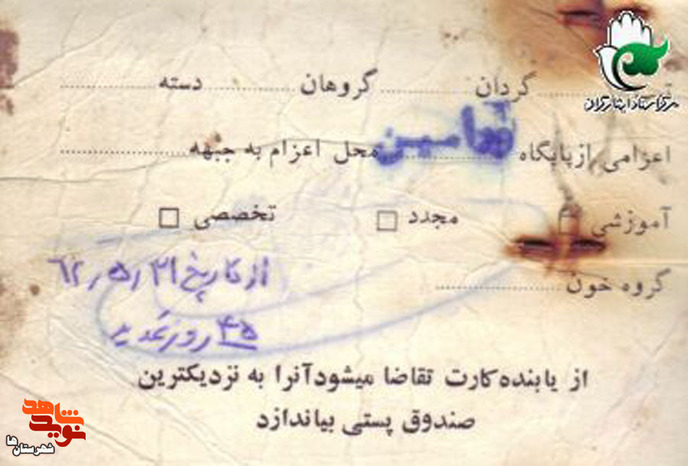 مرکز اسناد ایثارگران
گردان ........ گروهان ........ دسته ........
اعزامی از پایگاه ورامین محل اعزام به جبهه ........
آموزشی □ مجدد □ تخصصی □
گروه خون ........
از تاریخ ۶۲،۵،۳۱
۴۵ روز تمدید
از یابنده کارت تقاضا میشود آنرا به نزدیکترین
صندوق پستی بیاندازد
نوید شاهد
شهرستان‌ها